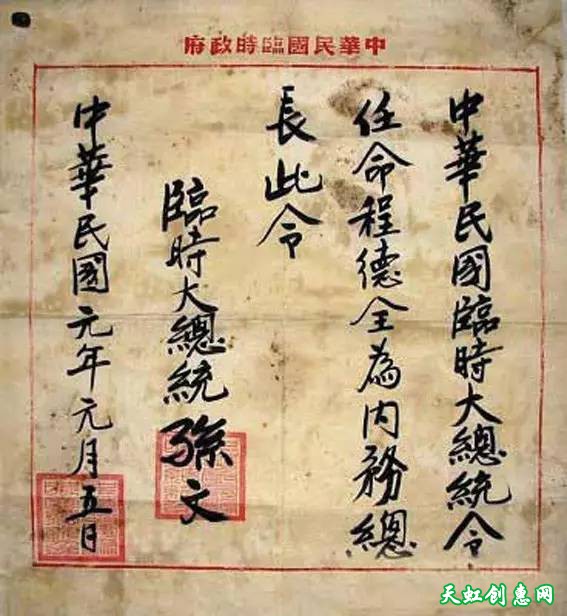 中華民國臨時政府
中華民國臨時大總統令
任命程德全為内務總
長此令
臨時大總統孫文
中華民國元年元月五日
天虹创惠网